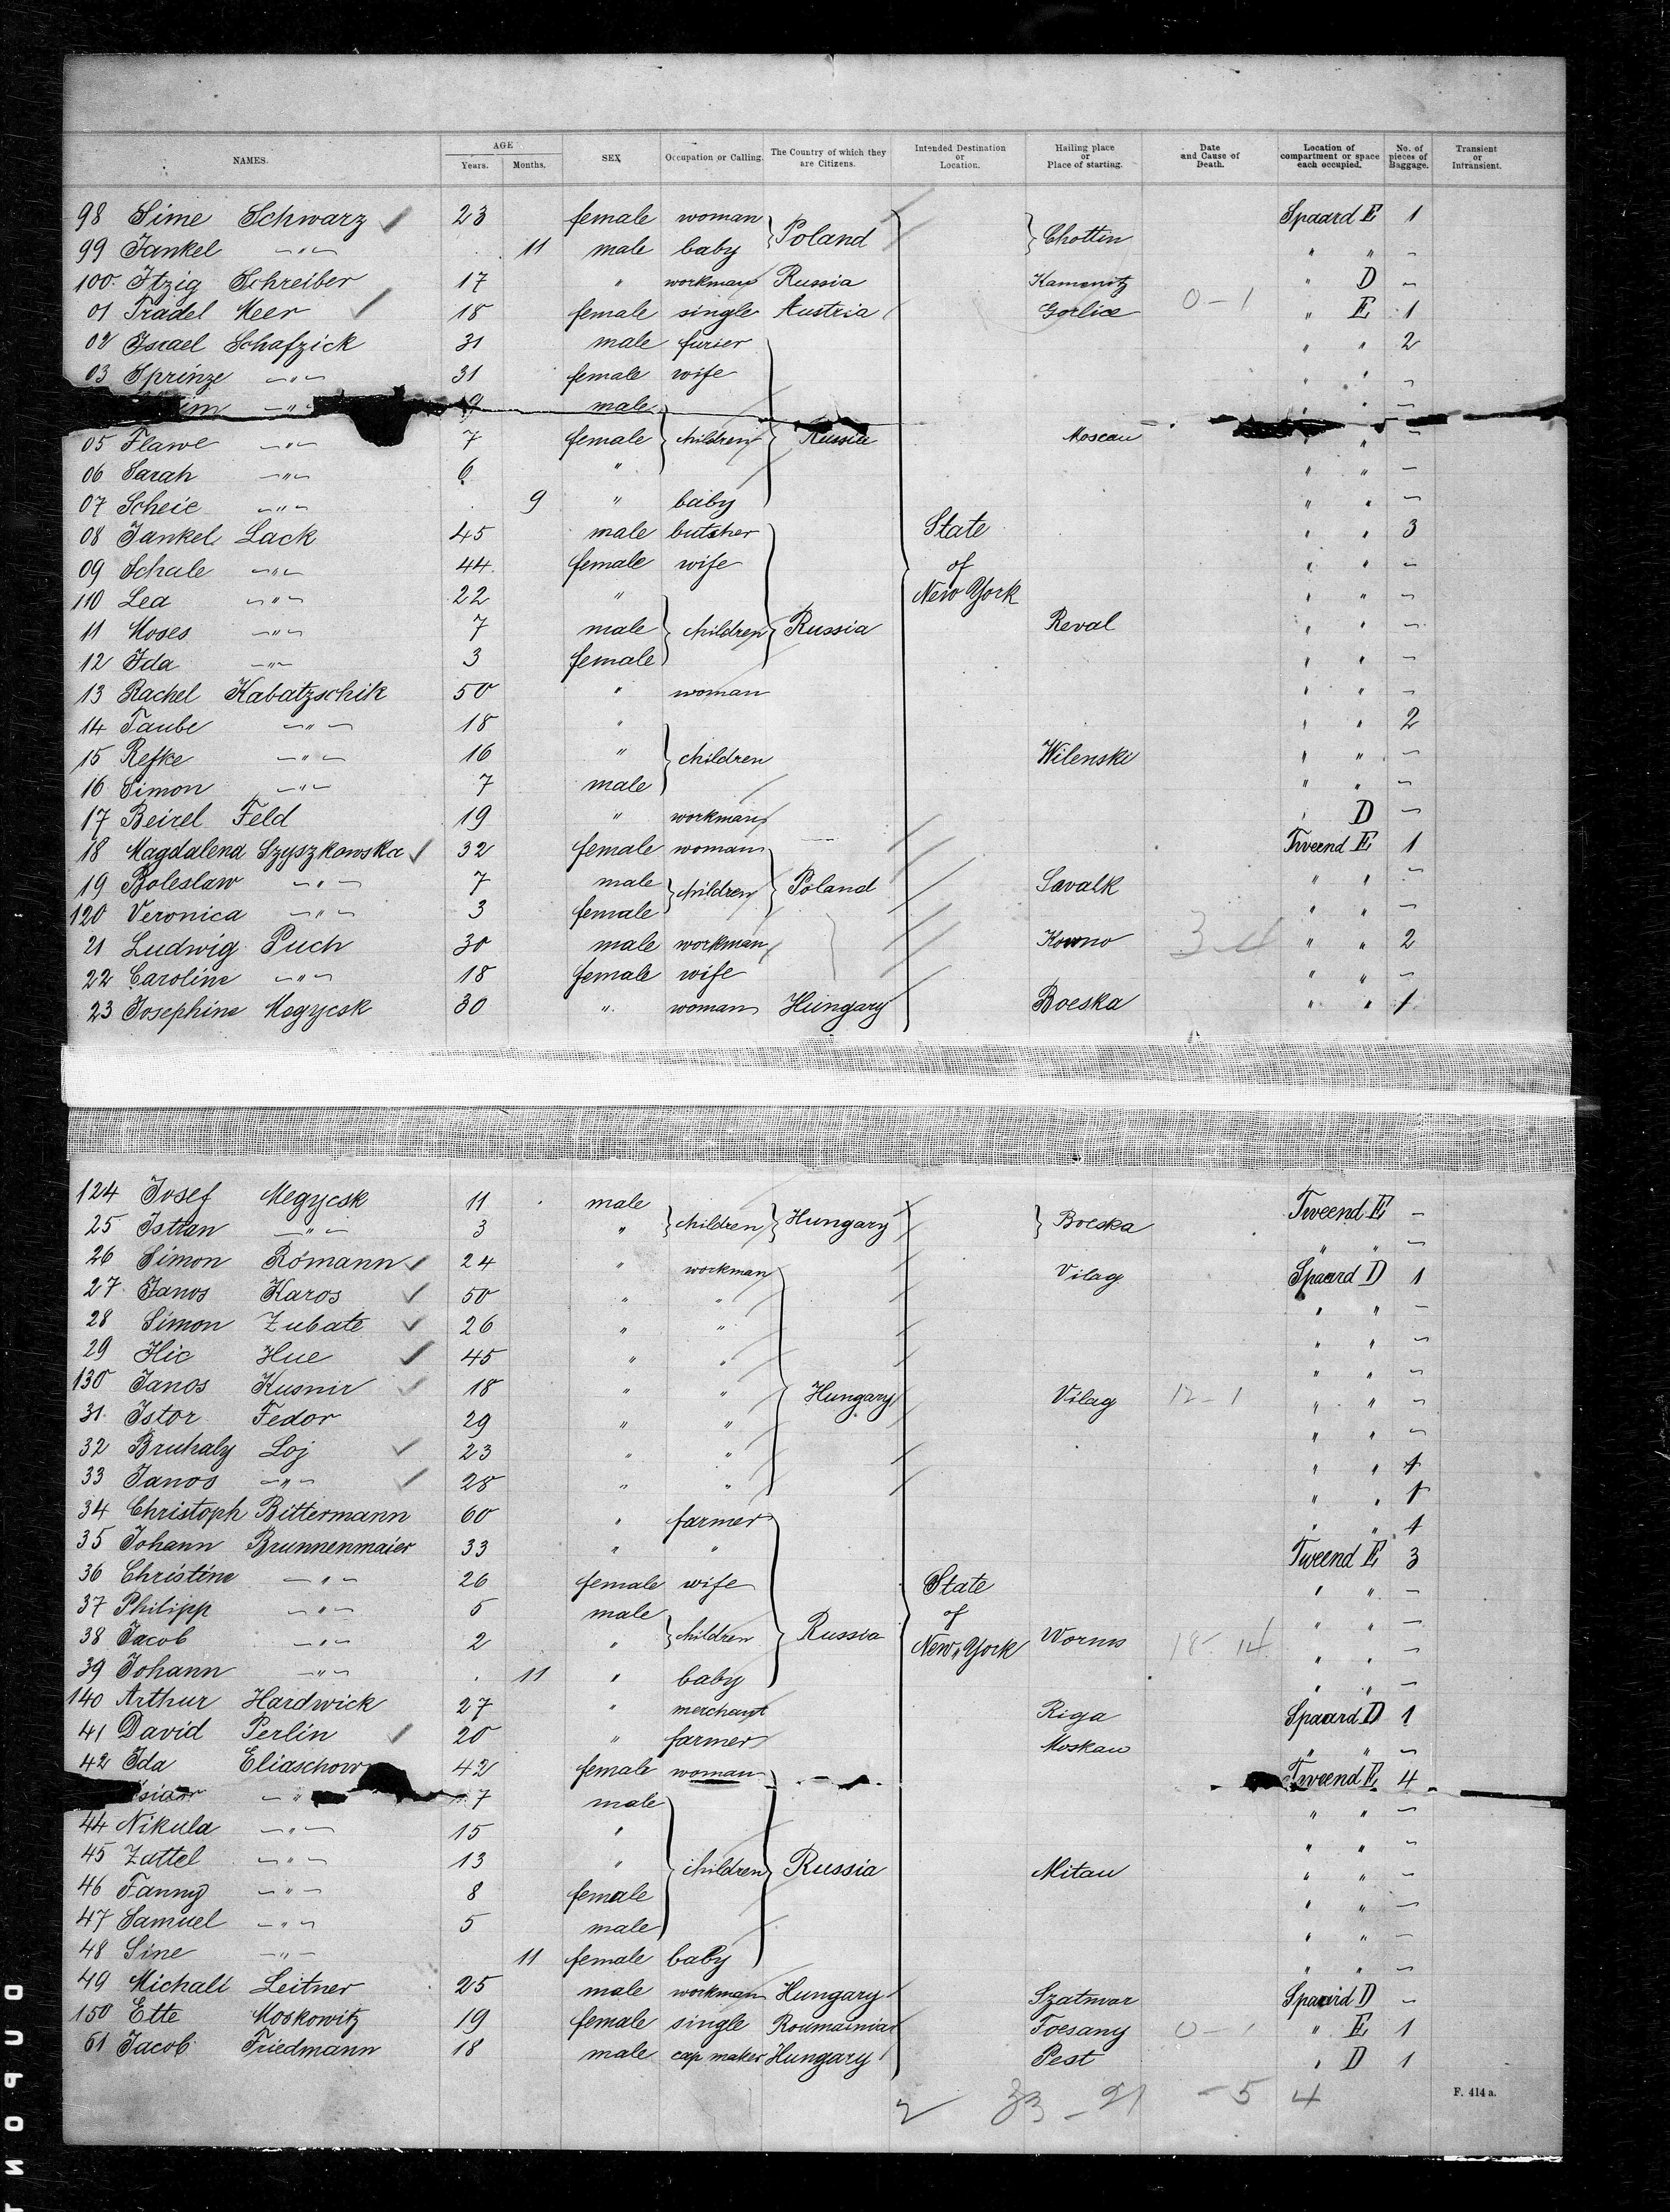 NAMES. AGE Years. Months. SEX Occupation or Calling. The Country of which they are Citizens. Intended Destination or Location. Hailing place or Place of starting. Date and Cause of Death. Location of compartment or space each occupied. No. of pieces of Baggage. Transient or Intransient.
98 Sime Schwarz 23 female woman Poland Chottin Spaard E 1
99 Jankel —"— 11 male baby " " –
100. Itzig Schreiber 17 " workman Russia Kamenitz " D –
01 Tradel Meer 18 female single Austria Gorlice 0-1 " E 1
02 Israel Schafzick 31 male furier " " 2
03 Sprinze —"— 31 female wife " " –
im —"— 9 male " " –
05 Flawe —"— 7 female children Russia Moscau " –
06 Sarah —"— 6 " " " –
07 Scheie —"— 9 " baby " " –
08 Jankel Lack 45 male butcher State " " 3
09 Schale —"— 44 female wife of " " –
110 Lea —"— 22 " New York " " –
11 Moses —"— 7 male children Russia Reval " " –
12 Ida —"— 3 female " " –
13 Rachel Kabatzschik 50 " woman " " –
14 Taube —"— 18 " " " 2
15 Refke —"— 16 " children Wilenski " " –
16 Simon —"— 7 male " " –
17 Beirel Feld 19 " workman " D –
18 Magdalena Szyszkowska 32 female woman Tweend E 1
19 Boleslaw —"— 7 male children Poland Savalk " " –
120 Veronica —"— 3 female " " –
21 Ludwig Puch 30 male workman Kowno 3-4 " " 2
22 Caroline —"— 18 female wife " " –
23 Josephine Megycsk 30 " woman Hungary Boeska " " 1
124 Josef Megycsk 11 male Tweend E –
25 Istran —"— 3 " children Hungary Boeska " " –
26 Simon Römann 24 " workman Vilag Spaard D 1
27 Janos Karos 50 " " " " –
28 Simon Zubate 26 " " " " –
29 Hic Hue 45 " " " " –
130 Janos Kusnir 18 " " Hungary Vilag 12-1 " " –
31 Istor Fedor 29 " " " " –
32 Bruhaly Loj 23 " " " " 1
33 Janos —"— 28 " " " " 1
34 Christoph Bittermann 60 " farmer " " 1
35 Johann Brunnenmaier 33 " " Tweend E 3
36 Christine —"— 26 female wife State " " –
37 Philipp —"— 5 male of " " –
38 Jacob —"— 2 " children Russia New York Worms 18-14 " " –
39 Johann —"— 11 " baby " " –
140 Arthur Hardwick 27 " merchant Riga Spaard D 1
41 David Perlin 20 " farmer Moskau " " –
42 Ida Eliaschow 42 female woman Tweend E 4
—"— 7 male " " –
44 Nikula —"— 15 " " " –
45 Zuttel —"— 13 " children Russia Mitau " " –
46 Fanny —"— 8 female " " –
47 Samuel —"— 5 male " " –
48 Sine —"— 11 female baby " " –
49 Michall Leitner 25 male workman Hungary Szatmar Spaard D –
150 Ette Moskowitz 19 female single Roumainia Focsany 0-1 " E 1
51 Jacob Friedmann 18 male cap maker Hungary Pest " D 1
2 33 - 21 - 5 4
F. 414 a.